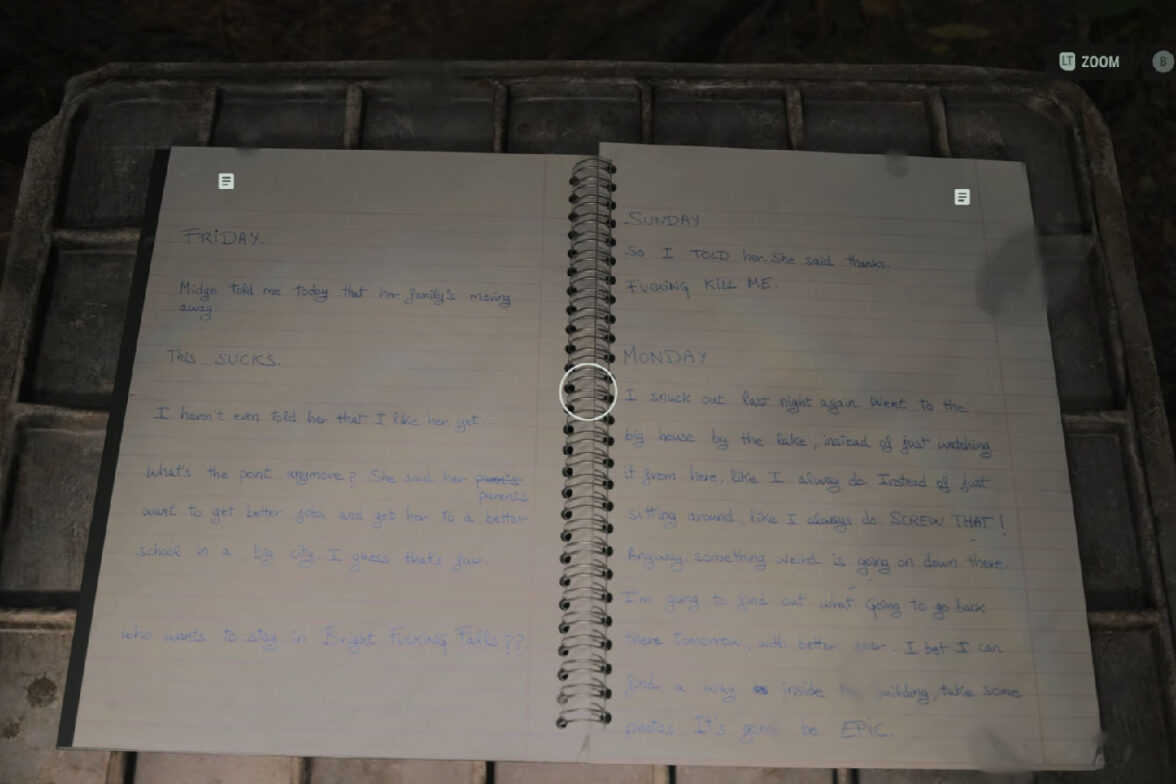 LT ZOOM
B
FRIDAY.
Midge told me today that her family's moving
away.
This SUCKS.
I haven't even told her that I like her yet...
What's the point anymore? She said her
parents
want to get better jobs and get her to a better
school in a big city. I guess that's fair.
who wants to stay in Bright FUCKING Falls??
SUNDAY
So I TOLD her. She said thanks.
FUCKING KILL ME.
MONDAY
I snuck out last night again. Went to the
big house by the lake, instead of just watching
it from here, like I always do. Instead of just
sitting around, like I always do. SCREW THAT!
Anyway, something weird is going on down there.
I'm going to find out what. Going to go back
there tomorrow, with better gear. I bet I can
find a way inside building, take some
photos. It's gonna be EPIC.